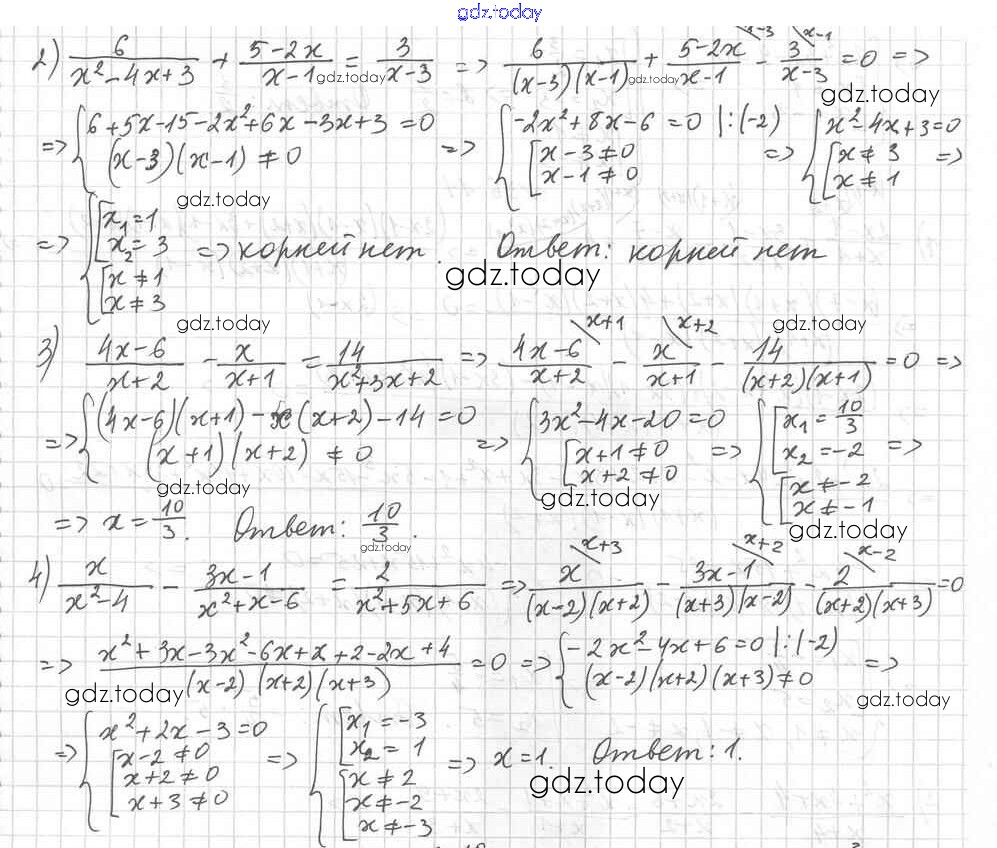 gdz.today
2) 6/(x²-4x+3) + (5-2x)/(x-1) = 3/(x-3) => 6/((x-3)(x-1)) + (5-2x)/(x-1) \x-3 - 3/(x-3) \x-1 = 0 =>
gdz.today gdz.today gdz.today
=> { 6+5x-15-2x²+6x-3x+3=0 => { -2x²+8x-6=0 |:(-2) => { x²-4x+3=0
(x-3)(x-1)≠0 [ x-3≠0 [ x≠3 =>
x-1≠0 x≠1
gdz.today
=> { [ x₁=1
x₂=3 => корней нет. Ответ: корней нет
[ x≠1 gdz.today
x≠3
gdz.today gdz.today
3) (4x-6)/(x+2) - x/(x+1) = 14/(x²+3x+2) => (4x-6)/(x+2) \x+1 - x/(x+1) \x+2 - 14/((x+2)(x+1)) = 0 =>
=> { (4x-6)(x+1)-x(x+2)-14=0 => { 3x²-4x-20=0 => { [ x₁=10/3
(x+1)(x+2)≠0 [ x+1≠0 x₂=-2 =>
x+2≠0 [ x≠-2
x≠-1
gdz.today gdz.today gdz.today
=> x=10/3. Ответ: 10/3.
gdz.today
4) x/(x²-4) - (3x-1)/(x²+x-6) = 2/(x²+5x+6) => x/((x-2)(x+2)) \x+3 - (3x-1)/((x+3)(x-2)) \x+2 - 2/((x+2)(x+3)) \x-2 = 0
=> (x²+3x-3x²-6x+x+2-2x+4)/((x-2)(x+2)(x+3)) = 0 => { -2x²-4x+6=0 |:(-2)
(x-2)(x+2)(x+3)≠0 =>
gdz.today gdz.today
=> { x²+2x-3=0 => { [ x₁=-3
[ x-2≠0 x₂=1 => x=1. Ответ: 1.
x+2≠0 [ x≠2
x+3≠0 x≠-2
x≠-3
gdz.today